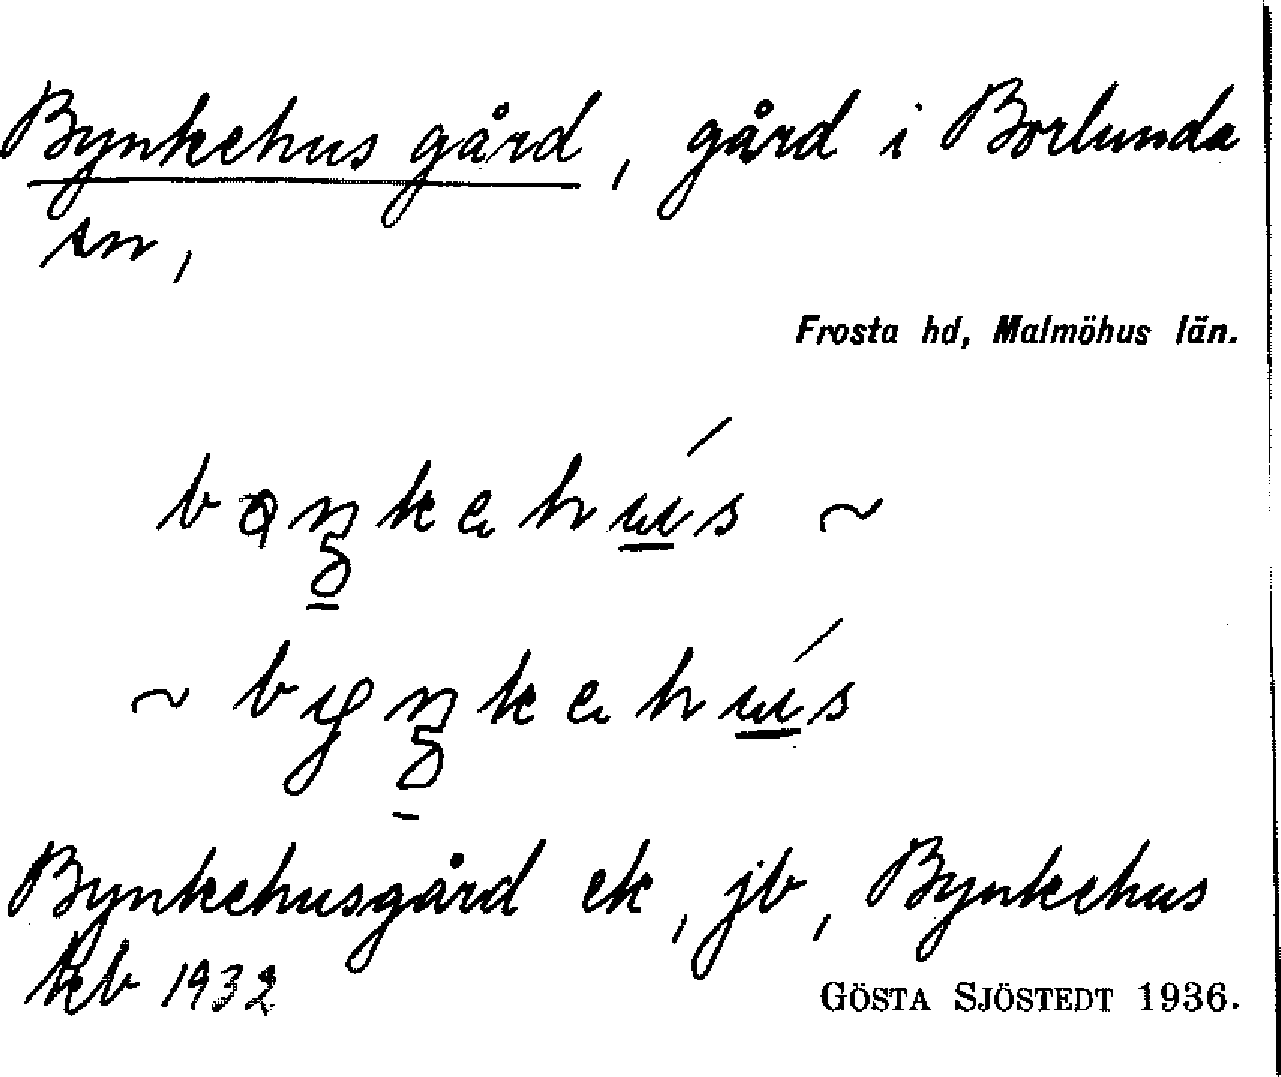 Bynkehus gård, gård i Borlunda
sn,
Frosta hd, Malmöhus län.
Bynkehusgård ek, jb, Bynkehus
kb 1932
GÖSTA SJÖSTEDT 1936.